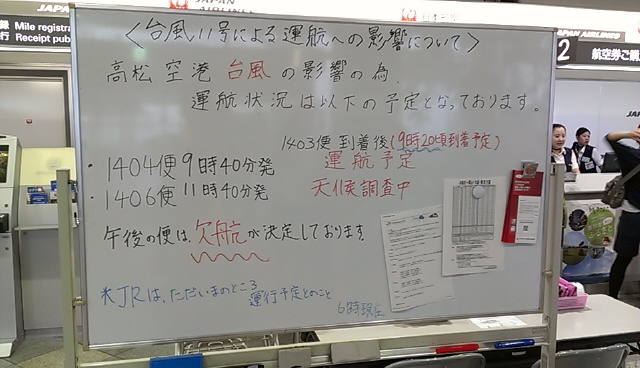 JAPAN
JAPAN AIRLINES
Mile registra
Receipt pub
JAPAN AIRLINES
2
航空券ご購
<台風11号による運航への影響について>
高松空港台風の影響の為、
運航状況は以下の予定となっております。
1403便到着後(9時20頃到着予定)
・1404便9時40分発 運航予定
・1406便11時40分発 天候調査中
午後の便は、欠航が決定しております。
※JRは、ただいまのところ
運行予定とのこと
6時現在